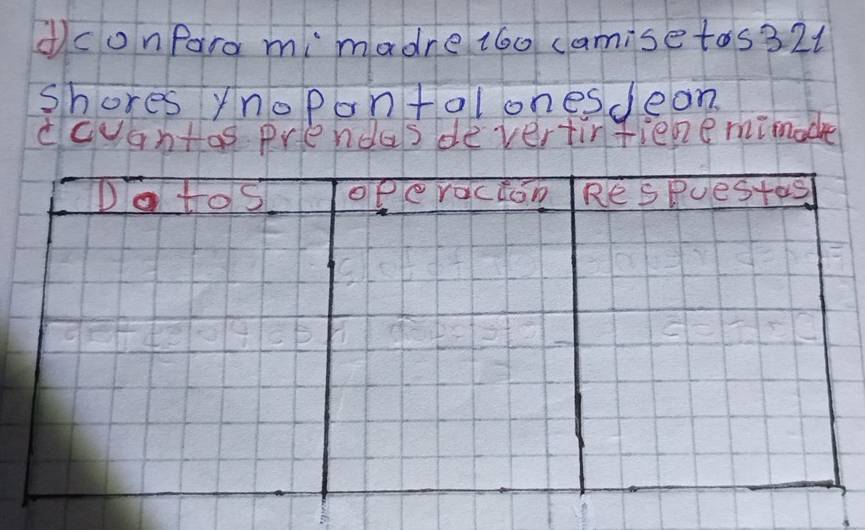 d) conpara mi madre 160 camisetas 321
shores y no pantalones jean
¿cuantas prendas de vertir tiene mi madre
Datos operación Respuestas